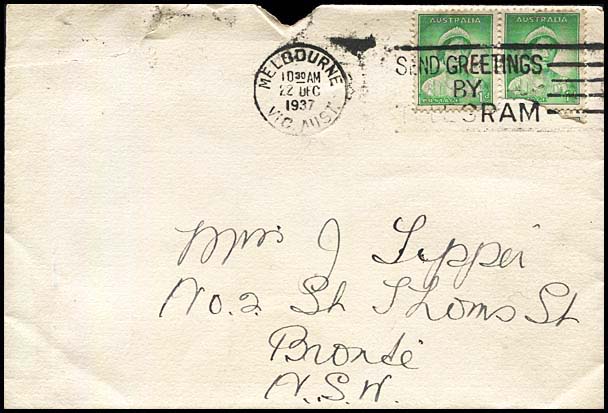 AUSTRALIA AUSTRALIA
MELBOURNE
10 30 AM
22 DEC
1937
VIC. AUST.
SEND GREETINGS
BY
GRAM
POSTAGE
Mrs J Tipper
No. 2 St Thoms St
Bronte
N.S.W.